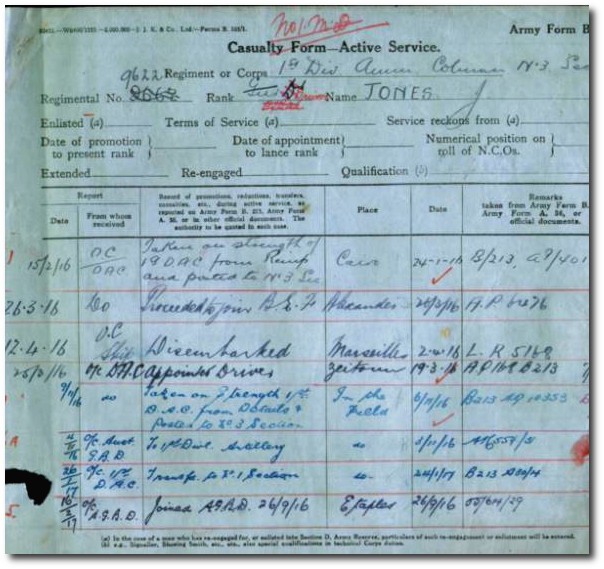 No/M.D
Army Form B
Casualty Form—Active Service.
9622 Regiment or Corps 1st Div Amm. Column No 3 Sec
Regimental No. Rank Driver Name JONES J
Enlisted (a) Terms of Service (a) Service reckons from (a)
Date of promotion to present rank } Date of appointment to lance rank } Numerical position on roll of N.C.Os. }
Extended Re-engaged Qualification (b)
Report
Date
From whom received
Record of promotions, reductions, transfers, casualties, etc., during active service, as reported on Army Form B. 213, Army Form A. 36, or in other official documents. The authority to be quoted in each case.
Place
Date
Remarks
taken from Army Form B.
Army Form A. 36, or
official documents.
15/2/16 OC DAC Taken on strength of 1 DAC from and posted to No 3 Sec Cairo 24-1-16 B/213
26-3-16 do Proceeded to join B.E.F Alexander
12-4-16 O.C Ship Disembarked Marseilles 2-4-16 L.R 5168
o/c DAC appointed Driver Zeitoun 19-3-16 AP168 B213
do Taken on Strength 1st D.A.C. from Details & Posted to No 3 Section In the Field B213
o/c Aust G.B.D To 1st Divl. Artillery do
O/C. 1st D.A.C. Transf. to No 1 Section do 24/1/17 B213
o/c A.G.B.D. Joined AGBD 26/9/16 Etaples 26/9/16
(a) In the case of a man who has re-engaged for, or enlisted into Section D, Army Reserve, particulars of such re-engagement or enlistment will be entered.
(b) e.g., Signaller, Shoeing Smith, etc., etc., also special qualifications in technical Corps duties.